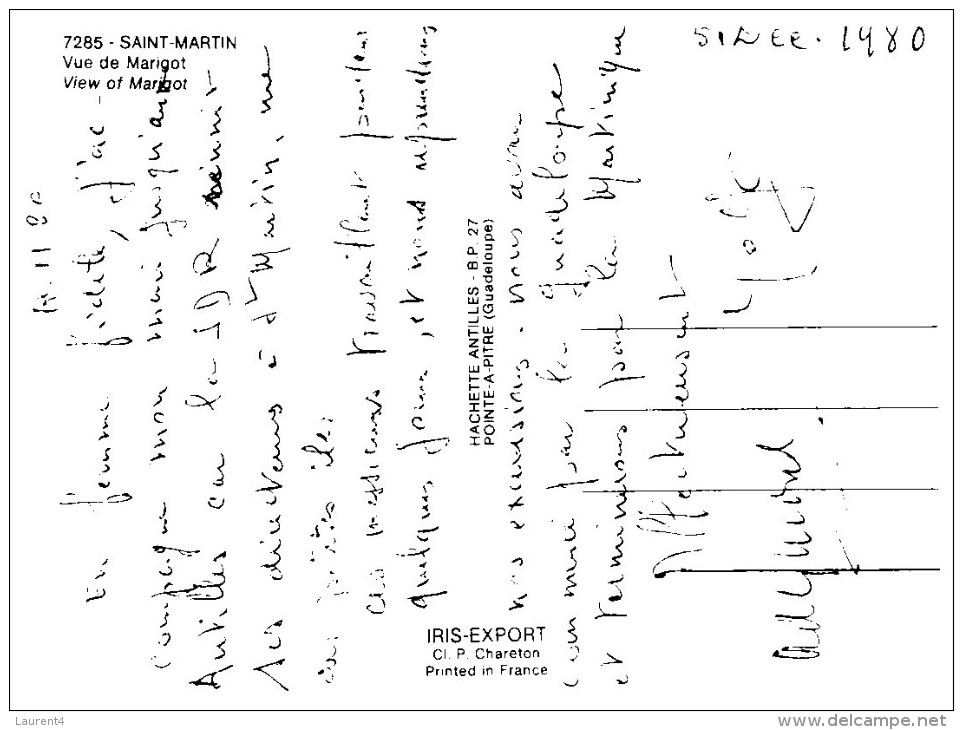 7285 - SAINT-MARTIN
Vue de Marigot
View of Marigot
SINCE. 1980
11 80
En femme fidèle, j'ac-
compagne mon mari jusqu'aux
Antilles car la SDR réunit
ses directeurs à St Martin, une
des petites îles
ces messieurs travaillent pendant
quelques jours, et nous reprendrons
nos excursions. nous avons
commencé par la Guadeloupe
et terminerons par la Martinique
Affectueusement
HACHETTE ANTILLES - B.P. 27
POINTE-A-PITRE (Guadeloupe)
IRIS-EXPORT
Cl. P. Chareton
Printed in France
Laurent4
www.delcampe.net